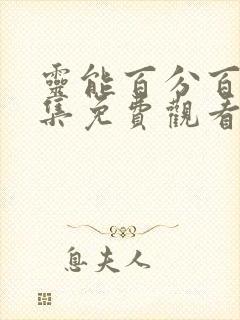 靈能百分百
集免費觀看
息夫人